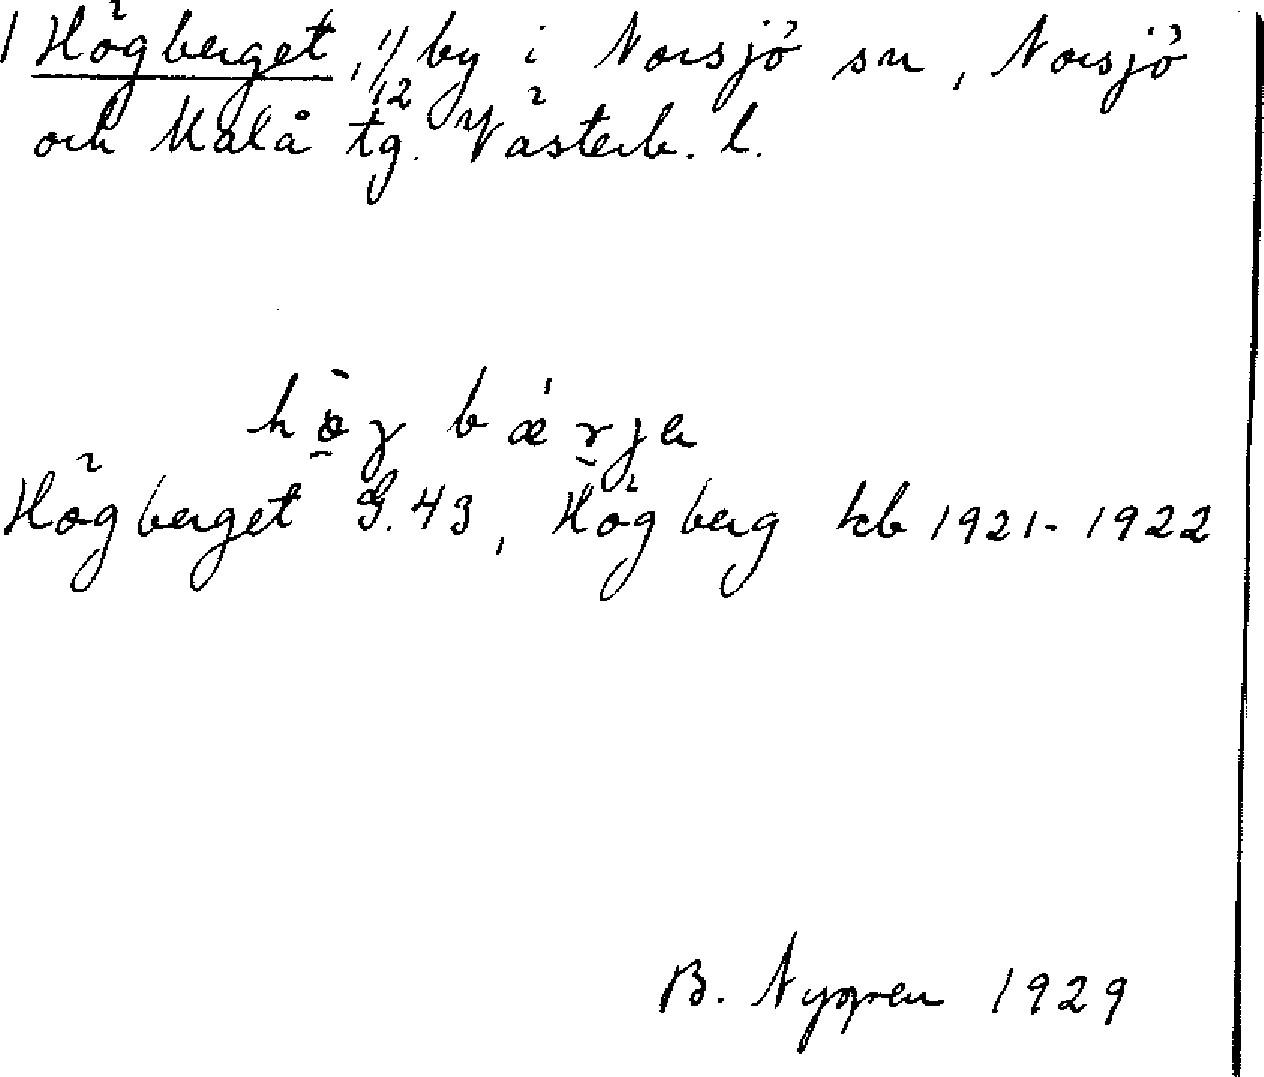 1 Högberget, 1/12 by i Norsjö sn, Norsjö
och Malå tg. Västerb. l.
hö̀g bǽrja
Högberget G. 43, Högberg kb 1921-1922
B. Nygren 1929